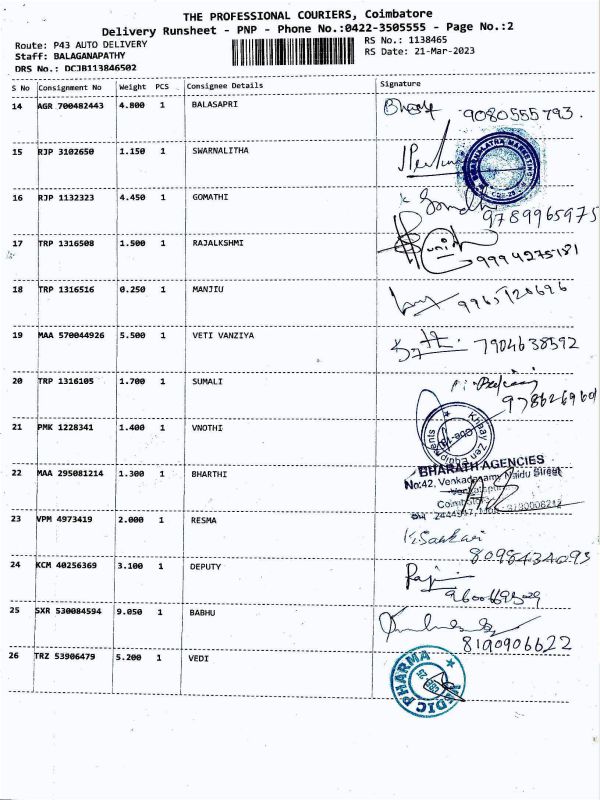 THE PROFESSIONAL COURIERS, Coimbatore
Delivery Runsheet - PNP - Phone No.:0422-3505555 - Page No.:2
Route: P43 AUTO DELIVERY
RS No.: 1138465
Staff: BALAGANAPATHY
RS Date: 21-Mar-2023
DRS No.: DCJB113846502
S No Consignment No Weight PCS Consignee Details Signature
14 AGR 700482443 4.800 1 BALASAPRI 9080555793.
15 RJP 3102650 1.150 1 SWARNALITHA
16 RJP 1132323 4.450 1 GOMATHI 9789965975
17 TRP 1316508 1.500 1 RAJALKSHMI 9994275181
18 TRP 1316516 0.250 1 MANJIU 9965128696
19 MAA 570044926 5.500 1 VETI VANZIYA 7904638592
20 TRP 1316105 1.700 1 SUMALI
21 PMK 1228341 1.400 1 VNOTHI
22 MAA 295081214 1.300 1 BHARTHI
BHARATH AGENCIES
No:42, Venkadasamy Naidu Street
23 VPM 4973419 2.000 1 RESMA
24 KCM 40256369 3.100 1 DEPUTY
25 SXR 530084594 9.050 1 BABHU 8190906622
26 TRZ 53906479 5.200 1 VEDI